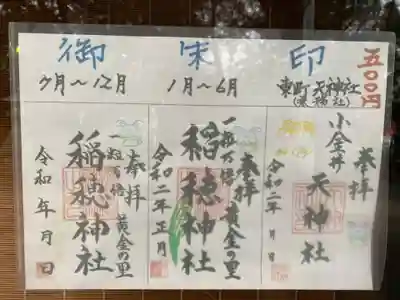 御朱印
五〇〇円
7月〜12月
1月〜6月
東町天神社
奉拝
小金井
天神社
令和二年 月 日
奉拝
一粒万倍 黄金の里
稲穂神社
令和二年正月
奉拝
一粒万倍 黄金の里
稲穂神社
令和 年 月 日